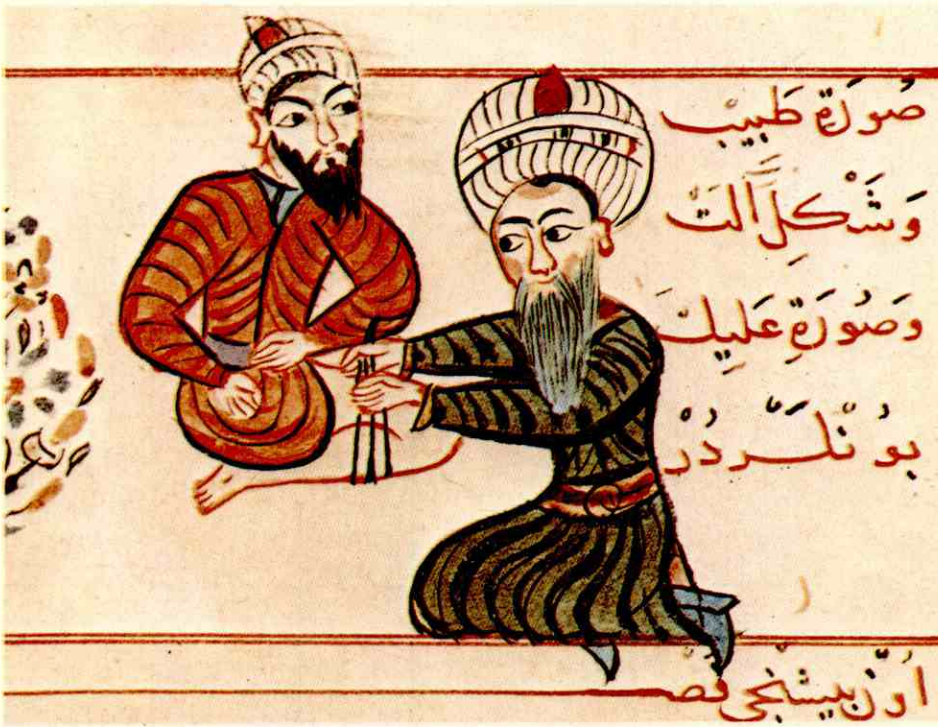 صُورَةِ طَبِيبْ
وَشَكْلِ اٰلَتْ
وَصُورَةِ عَلِيلْ
بُونْلَرْدُرْ
اُونْ بِيشَنْجِى فصـ